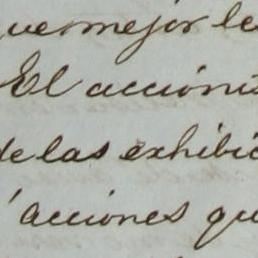 que mejor le
El accionis
de las exhibic
acciones qu